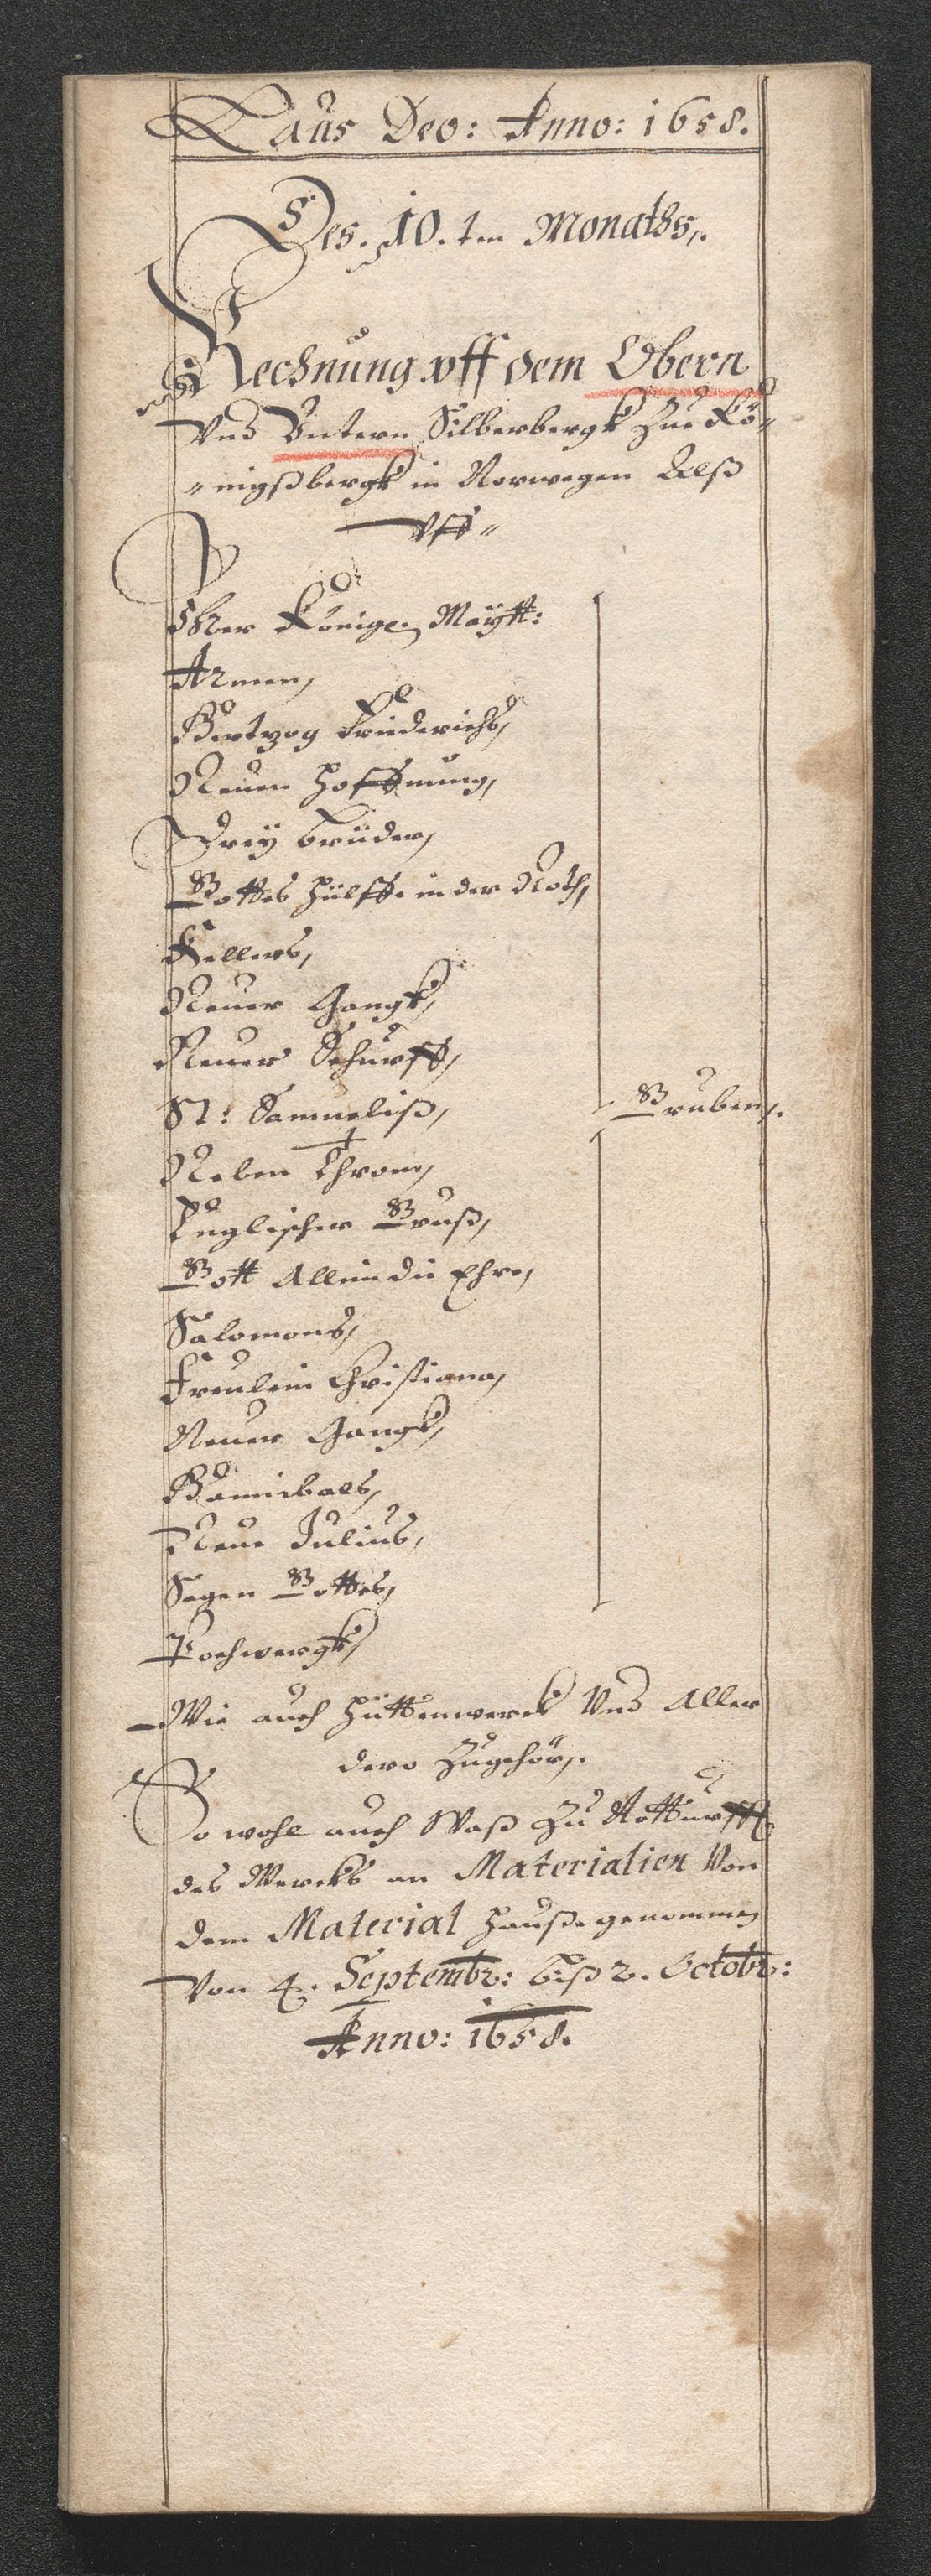 Laus Deo: Anno: 1658.
Des. 10. tn Monaths,.
Rechnung vff dem Obern
Vnd Vntern Silberbergk Zue Kö-
-nigßbergk in Norwegen Alß
Vff"
Ihrer Königl. Maÿtt:
Armen,
Hertzog Friederichs,
Neuen Hoffnung,
Dreÿ Brüder,
Gottes Hülffe in der Noth,
Kellers,
Neuer Gangk,
Neuer Schurff,
St: Samueliß,
Gruben,.
Neben Throm,
Englischer Gruß,
Gott Allein die Ehre,
Salomons,
Freulein Christiana,
Neuer Gangk,
Hannibals,
Neue Julius,
Segen Gottes,
Pochwergk,
Wie auch Hüttenwerck Vnd Aller
dero Zugehör,.
So wohl auch Waß Zu Notturfft
des Wercks an Materialien Von
dem Material Hauße genommen
Von 4. Septembr: biß 2. Octobr:
Anno: 1658.